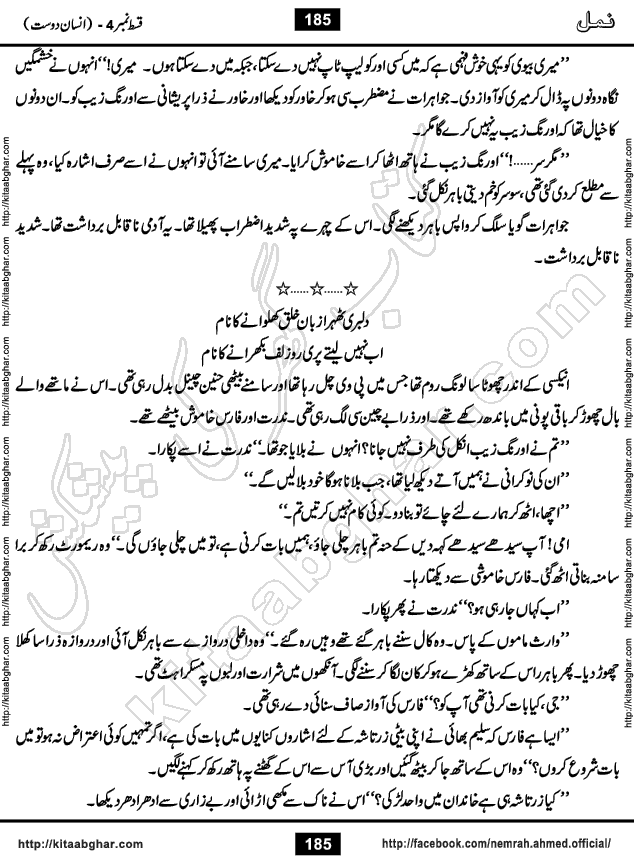 قسط نمبر 4 - (انسان دوست)
185
نمل
’’میری بیوی کو یہی خوش فہمی ہے کہ میں کسی اور کو لیپ ٹاپ نہیں دے سکتا، جبکہ میں دے سکتا ہوں۔ میری!‘‘ انہوں نے خشمگیں
نگاہ دونوں پہ ڈال کر میری کو آواز دی۔ جواہرات نے مضطرب سی ہو کر خاور کو دیکھا اور خاور نے ذرا پریشانی سے اورنگزیب کو۔ ان دونوں
کا خیال تھا کہ اورنگ زیب یہ نہیں کرے گا مگر۔
’’مگر سر......!‘‘ اورنگ زیب نے ہاتھ اٹھا کر اسے خاموش کرایا۔ میری سامنے آئی تو انہوں نے اسے صرف اشارہ کیا، وہ پہلے
سے مطلع کر دی گئی تھی، سو سر کو خم دیتی باہر نکل گئی۔
جواہرات گویا سلگ کر واپس باہر دیکھنے لگی۔ اس کے چہرے پہ شدید اضطراب پھیلا تھا۔ یہ آدمی ناقابل برداشت تھا۔ شدید
ناقابل برداشت۔
☆......☆......☆
دلبری ٹھہرا زبان خلق کھلوانے کا نام
اب نہیں لیتے پری رو زلف بکھرانے کا نام
انیکسی کے اندر چھوٹا سا لونگ روم تھا جس میں ٹی وی چل رہا تھا اور سامنے بیٹھی حنین چینل بدل رہی تھی۔ اس نے ماتھے والے
بال چھوڑ کر باقی پونی میں باندھ رکھے تھے۔ اور ذرا بے چین سی لگ رہی تھی۔ ندرت اور فارس خاموش بیٹھے تھے۔
’’تم نے اورنگ زیب انکل کی طرف نہیں جانا؟ انہوں نے بلایا جو تھا۔‘‘ ندرت نے اسے پکارا۔
’’ان کی نوکرانی نے ہمیں آتے دیکھ لیا تھا، جب بلانا ہو گا خود بلا لیں گے۔‘‘
’’اچھا، اٹھ کر ہمارے لئے چائے تو بنا دو۔ کوئی کام نہیں کرتیں تم۔‘‘
امی! آپ سیدھے سیدھے کہہ دیں کے حنہ تم باہر چلی جاؤ، ہمیں بات کرنی ہے، تو میں چلی جاؤں گی۔‘‘ وہ ریمورٹ رکھ کر برا
سا منہ بناتی اٹھ گئی۔ فارس خاموشی سے دیکھتا رہا۔
’’اب کہاں جا رہی ہو؟‘‘ ندرت نے پھر پکارا۔
’’وارث ماموں کے پاس۔ وہ کال سننے باہر گئے تھے وہیں رہ گئے۔‘‘ وہ داخلی دروازے سے باہر نکل آئی اور دروازہ ذرا سا کھلا
چھوڑ دیا۔ پھر باہر اس کے ساتھ کھڑے ہو کر کان لگا کر سننے لگی۔ آنکھوں میں شرارت اور لبوں پہ مسکراہٹ تھی۔
’’جی، کیا بات کرنی تھی آپ کو؟‘‘ فارس کی آواز صاف سنائی دے رہی تھی۔
’’ایسا ہے فارس کہ سلیم بھائی نے اپنی بیٹی زرتاشہ کے لئے اشاروں کنایوں میں بات کی ہے، اگر تمہیں کوئی اعتراض نہ ہو تو میں
بات شروع کروں؟‘‘ وہ اس کے ساتھ جا کر بیٹھ گئیں اور بڑی آس سے اس کے گھٹنے پہ ہاتھ رکھ کر کہنے لگیں۔
’’کیا زرتاشہ ہی ہے خاندان میں واحد لڑکی؟‘‘ اس نے ناک سے مکھی اڑائی اور بے زاری سے ادھر ادھر دیکھا۔
http://kitaabghar.com
185
http://facebook.com/nemrah.ahmed.official/
http://kitaabghar.com
http://kitaabghar.com
http://kitaabghar.com
http://kitaabghar.com
http://kitaabghar.com
http://kitaabghar.com
http://kitaabghar.com
http://kitaabghar.com
http://kitaabghar.com
http://kitaabghar.com
http://kitaabghar.com
http://kitaabghar.com
کتاب گھر کی پیشکش
kitaabghar.com